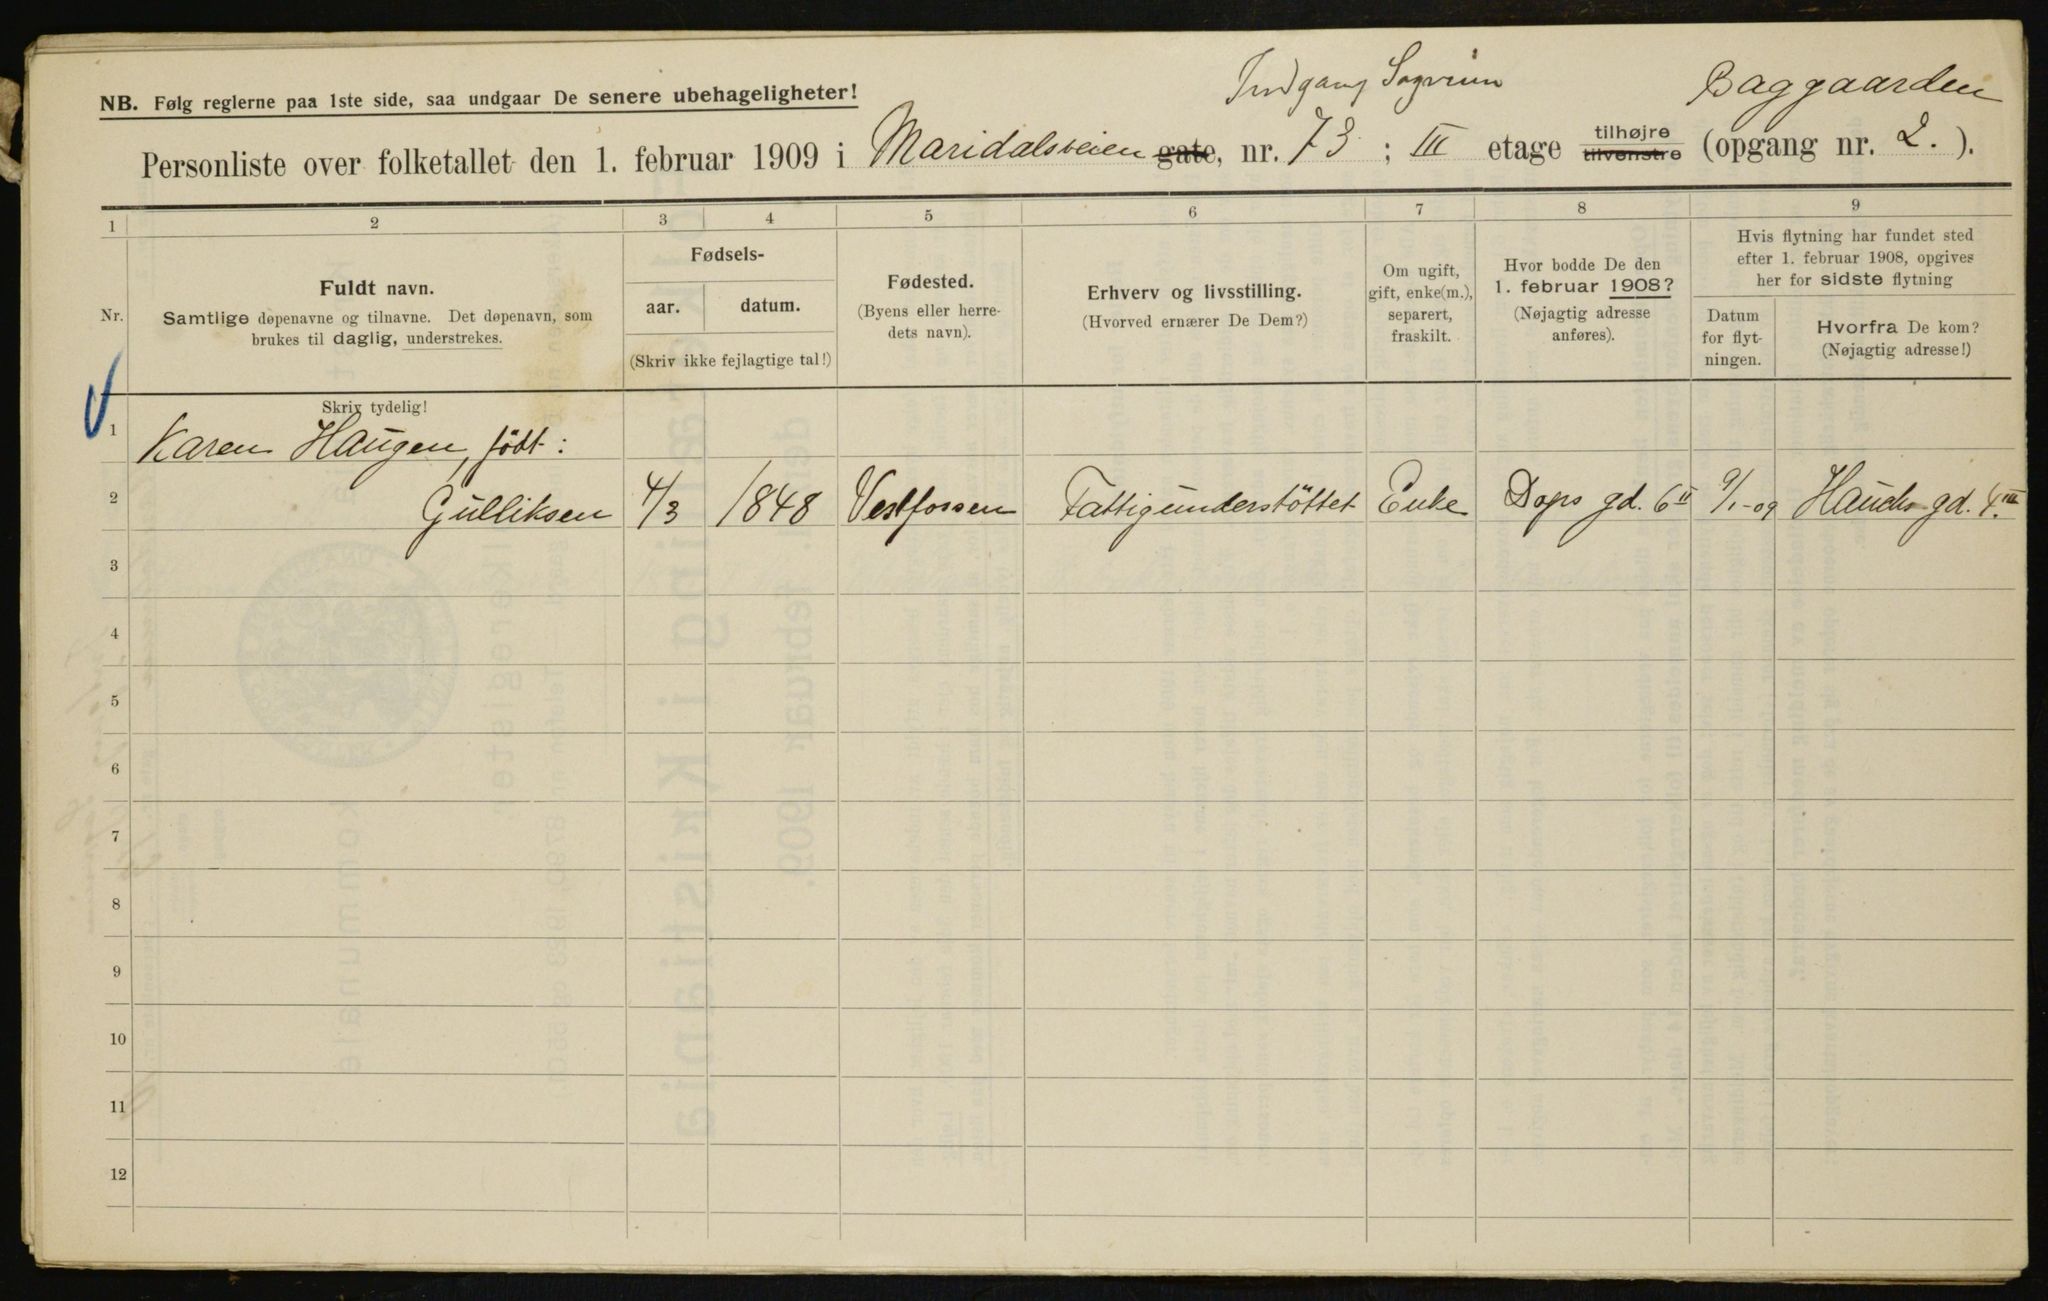 Indgang Sagveien
Baggaarden
NB. Følg reglerne paa 1ste side, saa undgaar De senere ubehageligheter!
Personliste over folketallet den 1. februar 1909 i Maridalsveien gate, nr. 73; III etage tilhøjre tilvenstre (opgang nr. 2.).
1 2 3 4 5 6 7 8 9
Nr.
Fuldt navn.
Samtlige døpenavne og tilnavne. Det døpenavn, som
brukes til daglig, understrekes.
Fødsels-
aar. datum.
(Skriv ikke fejlagtige tal!)
Fødested.
(Byens eller herre-
dets navn).
Erhverv og livsstilling.
(Hvorved ernærer De Dem?)
Om ugift,
gift, enke(m.),
separert,
fraskilt.
Hvor bodde De den
1. februar 1908?
(Nøjagtig adresse
anføres).
Hvis flytning har fundet sted
efter 1. februar 1908, opgives
her for sidste flytning
Datum
for flyt-
ningen.
Hvorfra De kom?
(Nøjagtig adresse!)
Skriv tydelig!
1 Karen Haugen, födt:
2 Gulliksen 4/3 1848 Vestfossen Fattigunderstöttet Enke Dops gd. 6 II 9/1-09 Hauchs gd. 4. III
3
4
5
6
7
8
9
10
11
12